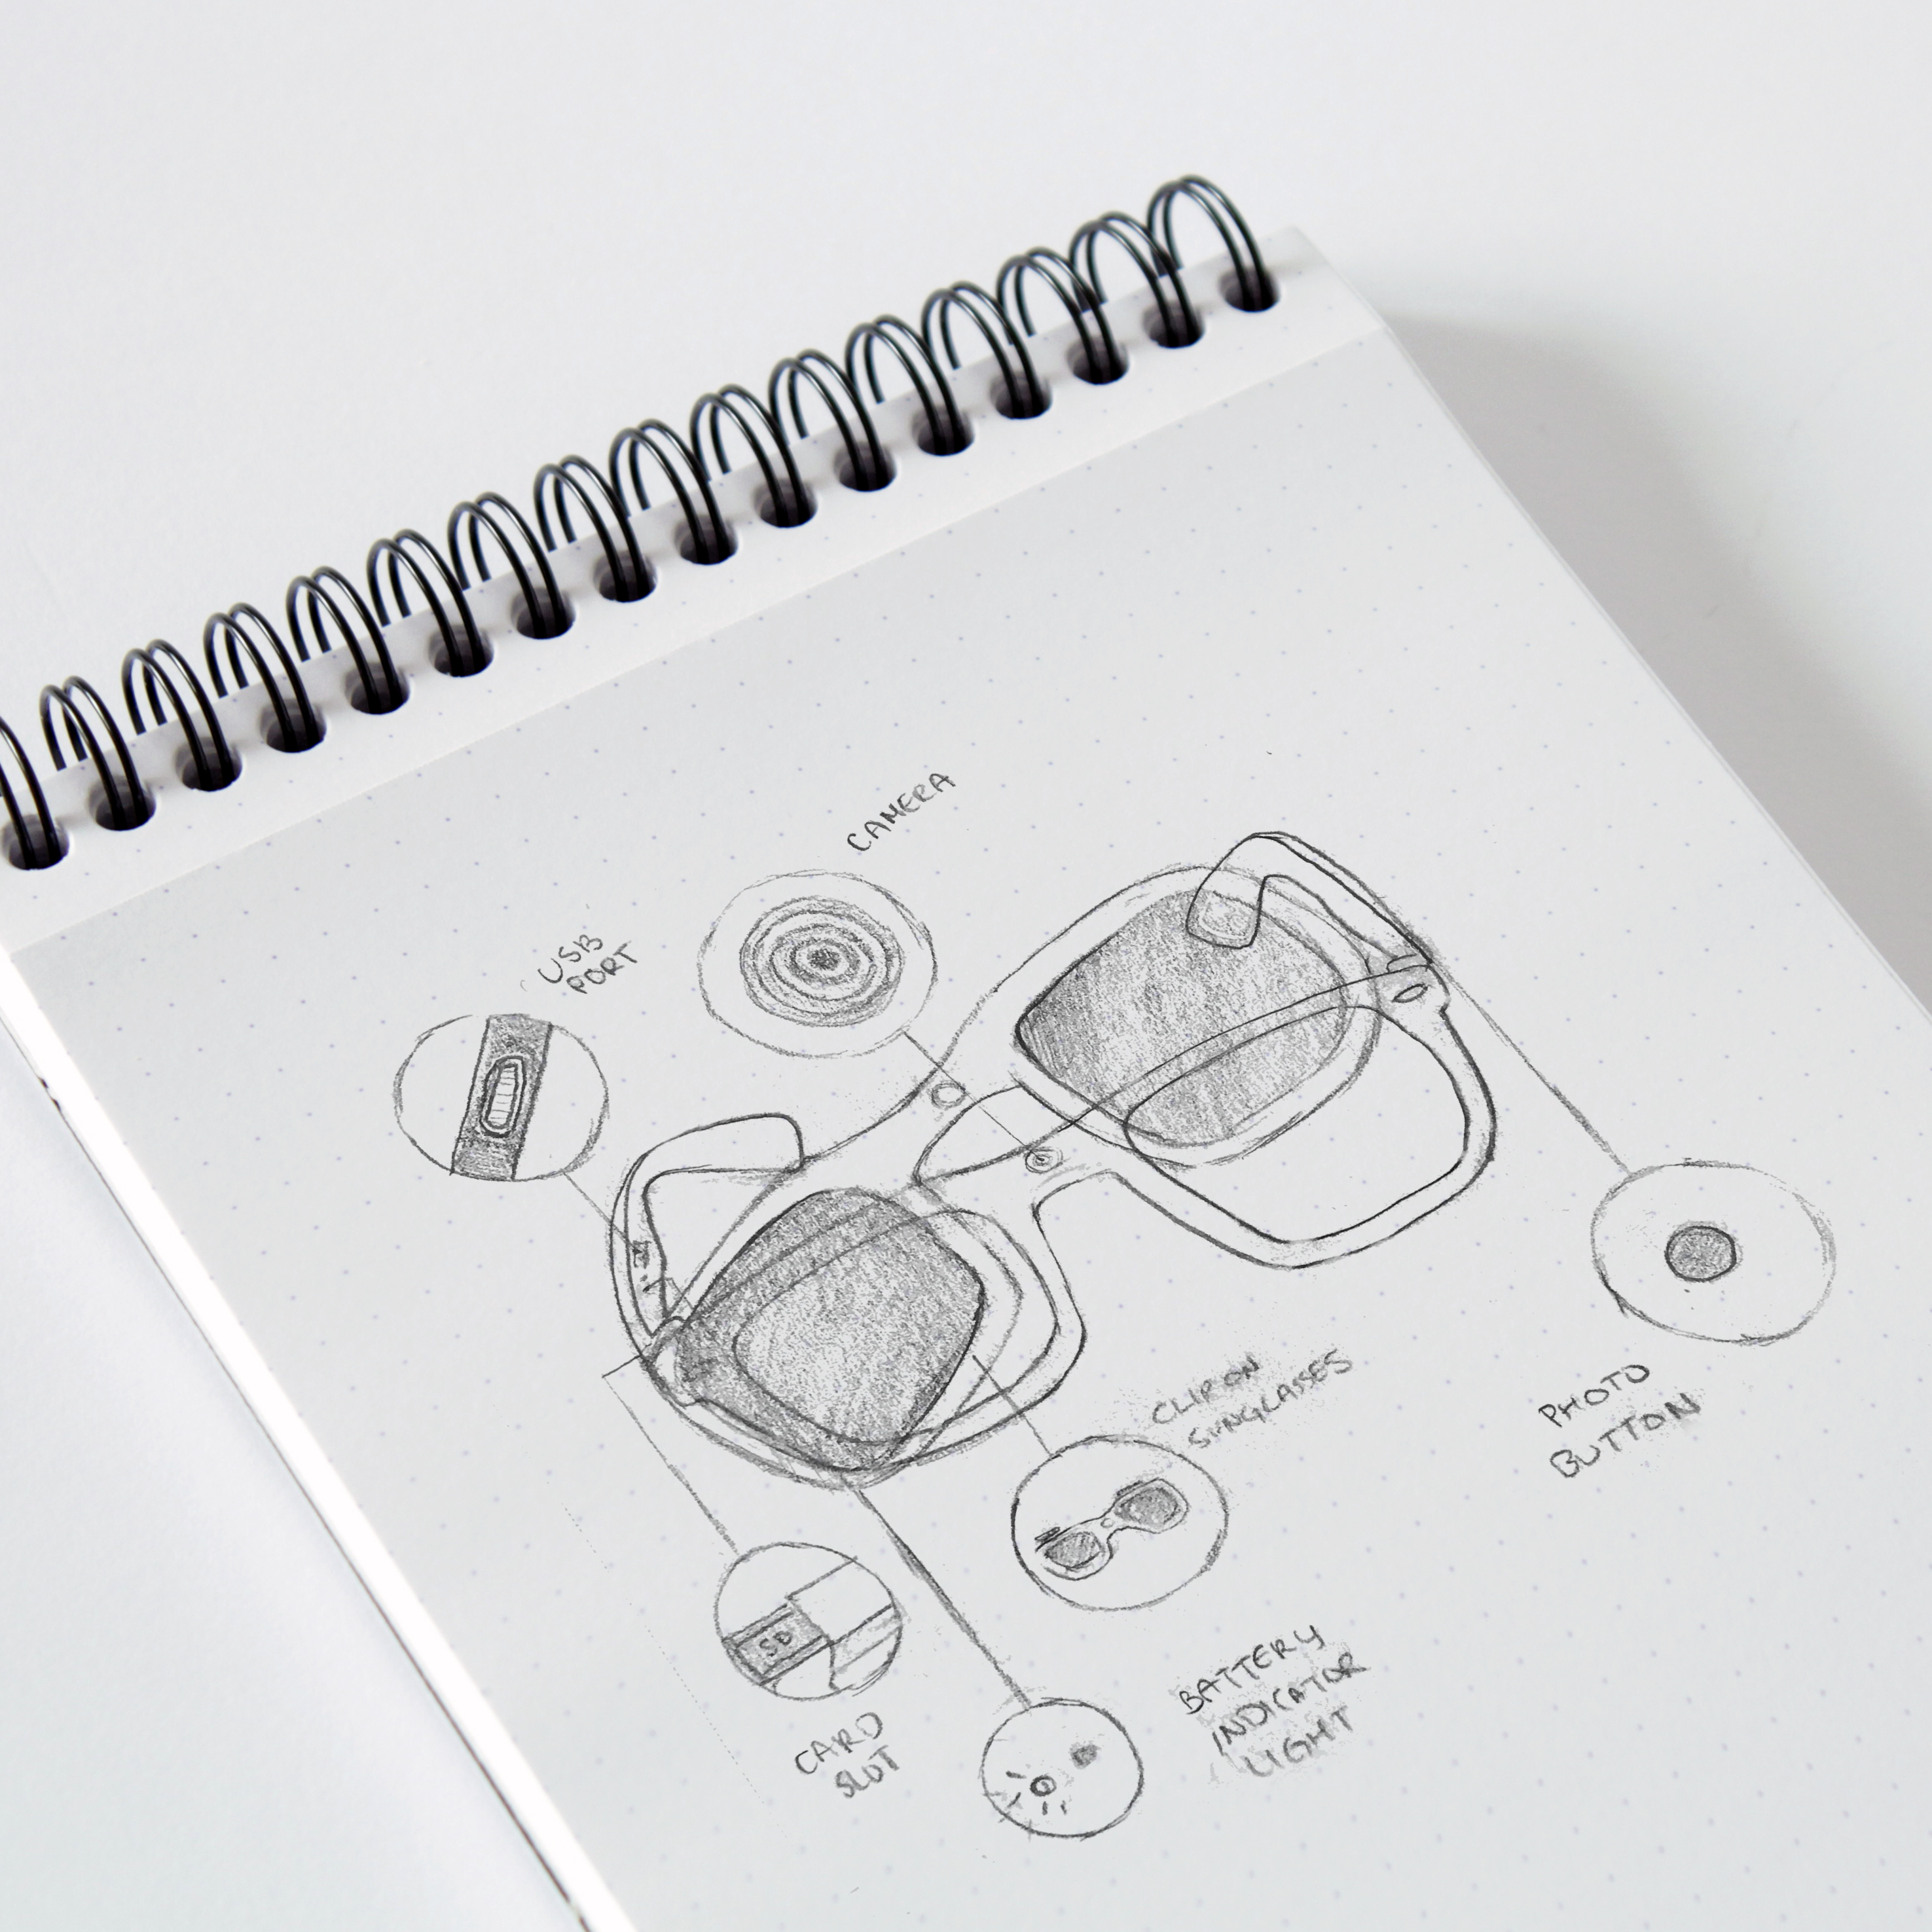 CAMERA
USB
PORT
CLIP ON
SUNGLASSES
PHOTO
BUTTON
SD
CARD
SLOT
BATTERY
INDICATOR
LIGHT